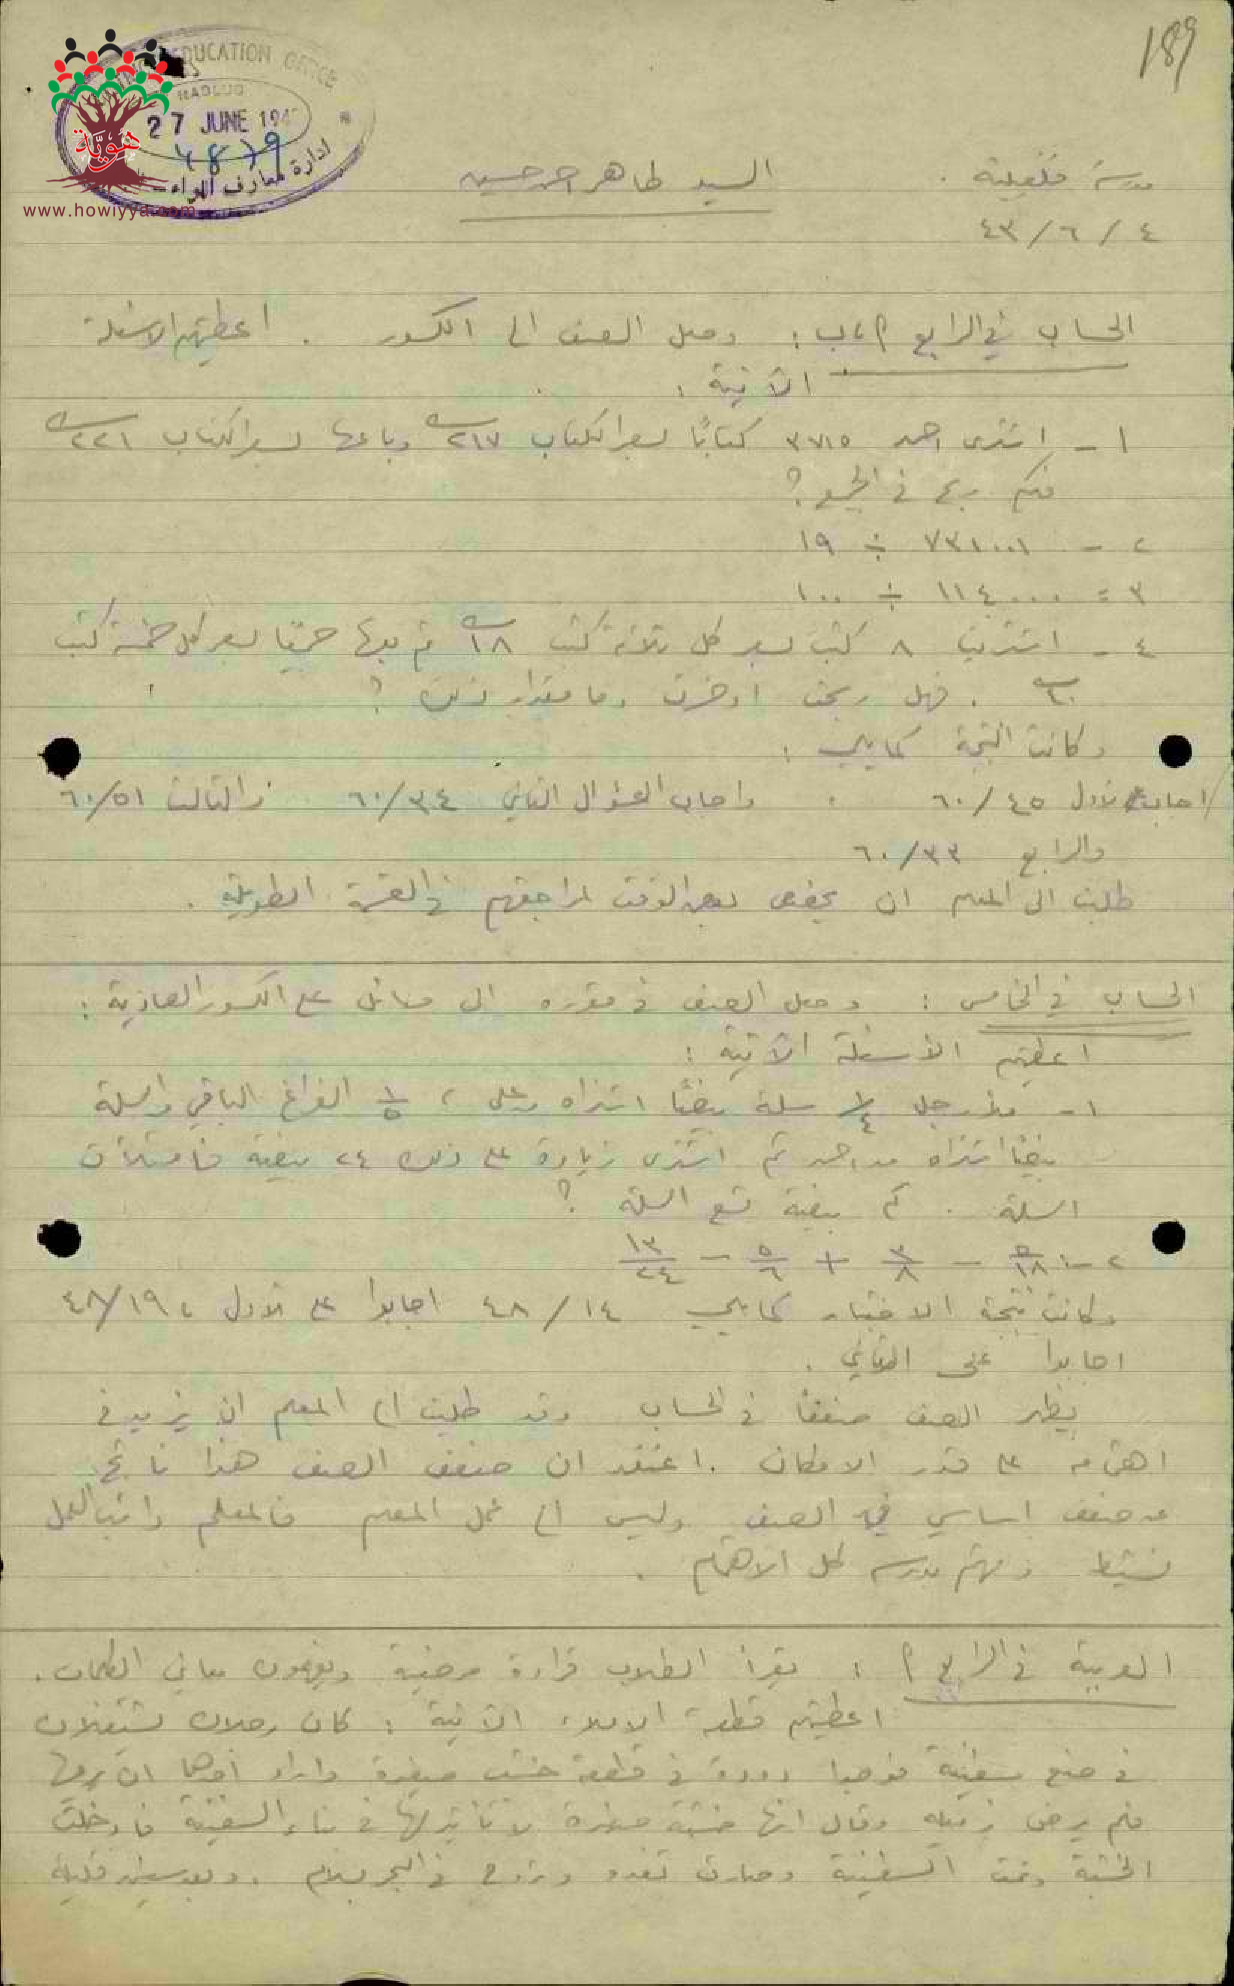 189
EDUCATION OFFICE
27 JUNE 194
4819
ادارة معارف اللواء
هوية
www.howiyya.com
مدرسة قلقيلية . السيد طاهر احمد حسين
٤ / ٦ / ٤٣
الحساب في الرابع أ، ب : وصل الصف الى الكسور . اعطيتهم الاسئلة
الآتية :
١ - اشترى احمد ٣٧١٥ كتابًا بسعر الكتاب ٢١٧ وباعها بسعر الكتاب ٢٢١
فكم ربح في الجميع ؟
٢ - ٧٣١٠٠١ ÷ ١٩
٣ = ١١٤٠٠٠ ÷ ١٠٠
٤ - اشتريت ٨ كتب بسعر كل ثلاثة كتب ١٨ ثم بعتها جميعًا بسعر كل خمسة كتب
. فهل ربحت او خسرت وما مقدار ذلك ؟
وكانت النتيجة كما يلي :
اجاب الاول ٤٥ / ٦٠ ، واجاب السؤال الثاني ٣٤ / ٦٠ والثالث ٥١ / ٦٠
والرابع ٣٣ / ٦٠
طلبت الى المعلم ان يخصص بعض الوقت لمراجعتهم في القسمة الطويلة .
الحساب في الخامس : وصل الصف في مقرره الى مسائل على الكسور العادية :
اعطيتهم الأسئلة الآتية :
١ - ملأ رجل ١/٤ سلة بيضًا اشتراه من علي ، ١/٥ الفراغ الباقي من السلة
بيضًا اشتراه من احمد ثم اشترى زيادة على ذلك ٢٤ بيضة فامتلأت
السلة . كم بيضة تسع السلة ؟
٢ - ٥/١٨ - ٣/٨ + ٥/٦ - ١٣/٢٤
وكانت نتيجة الاختبار كما يلي ١٤ / ٤٨ اجابوا على الاول ، ١٩ / ٤٨
اجابوا على الثاني .
يظهر الصف ضعفًا في الحساب وقد طلبت الى المعلم ان يزيد في
اهتمامه على قدر الامكان . اعتقد ان ضعف الصف هذا ناتج
عن ضعف اساسي في الصف وليس الى عمل المعلم فالمعلم دائب العمل
نشيط ومهتم بدروسه كل الاهتمام .
العربية في الرابع أ : يقرأ الطلاب قراءة مرضية ويفهمون معاني الكلمات .
اعطيتهم قطعة الاملاء الآتية : كان رجلان يشتغلان
في صنع سفينة فوجدا دودة في قطعة خشب صغيرة واراد احدهما ان يرميها
فلم يرض زميله وقال انها خشبة صغيرة لا تأثير لها في بناء السفينة فادخلت
الخشبة وتمت السفينة وصارت تغدو وتروح في البحر بسلام . وبعد سنين قليلة